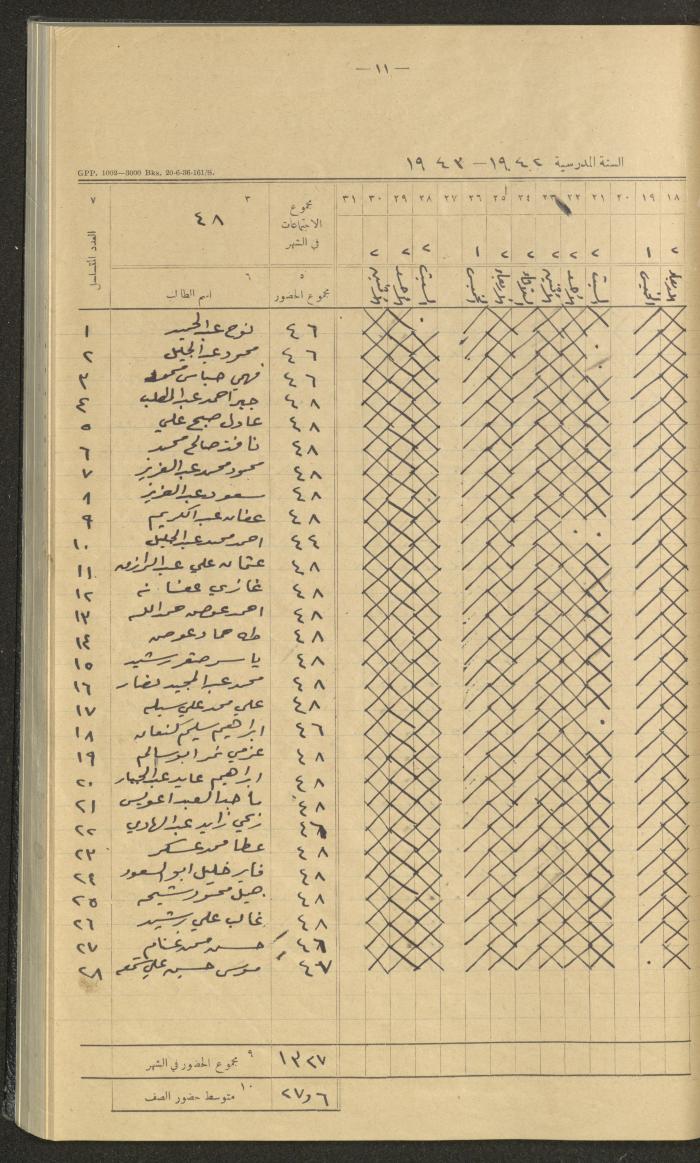 — ١١ —
السنة المدرسية ١٩٤٢ — ١٩٤٣
GPP. 1002—3000 Bks. 20-6-36-161/S.
١٨ ١٩ ٢٠ ٢١ ٢٢ ٢٣ ٢٤ ٢٥ ٢٦ ٢٧ ٢٨ ٢٩ ٣٠ ٣١ مجموع الاجتماعات في الشهر ٣ ٤٨ ٧ العدد المتسلسل
٢ ١ ٢ ٢ ٢ ٢ ٢ ١ ٢ ٢ ٢
الاربعاء الخميس السبت الأحد الاثنين الثلاثاء الأربعاء الخميس السبت الأحد الاثنين
٥ مجموع الحضور ٦ اسم الطالب
٤٦ نوح عبد الحميد ١
٤٦ محمود عبد الجليل ٢
٤٦ فهمي عباس محمود ٣
٤٨ جبر احمد عبد المطلب ٤
٤٨ عادل صبح علي ٥
٤٨ نافذ صالح محمد ٦
٤٨ محمود محمد عبد العزيز ٧
٤٨ سعود عبد العزيز ٨
٤٨ عفان عبد الكريم ٩
٤٤ احمد محمد عبد الجليل ١٠
٤٨ عثمان علي عبد الرازق ١١
٤٨ غازي عفانه ١٢
٤٨ احمد عوض حمد الله ١٣
٤٨ طه حماد عوض ١٤
٤٨ ياسر صقر رشيد ١٥
٤٨ محمد عبد المجيد نصار ١٦
٤٨ علي محمد علي ١٧
٤٦ ابراهيم سليم كنعان ١٨
٤٨ عزمي نمر ابو سالم ١٩
٤٨ ابراهيم عايد عبد الجبار ٢٠
٤٨ ماجد العبد اعويس ٢١
٤٨ زايد عبد الهادي ٢٢
٤٨ عطا محمد عسكر ٢٣
٤٨ فايز خليل ابو السعود ٢٤
٤٨ جميل محمود شيحه ٢٥
٤٨ غالب علي رشيد ٢٦
٤٦ حسن محمد غنام ٢٧
٤٧ موسى حسين علي ٢٨
١٣٢٧ ٩ مجموع الحضور في الشهر
٢٧,٦ ١٠ متوسط حضور الصف